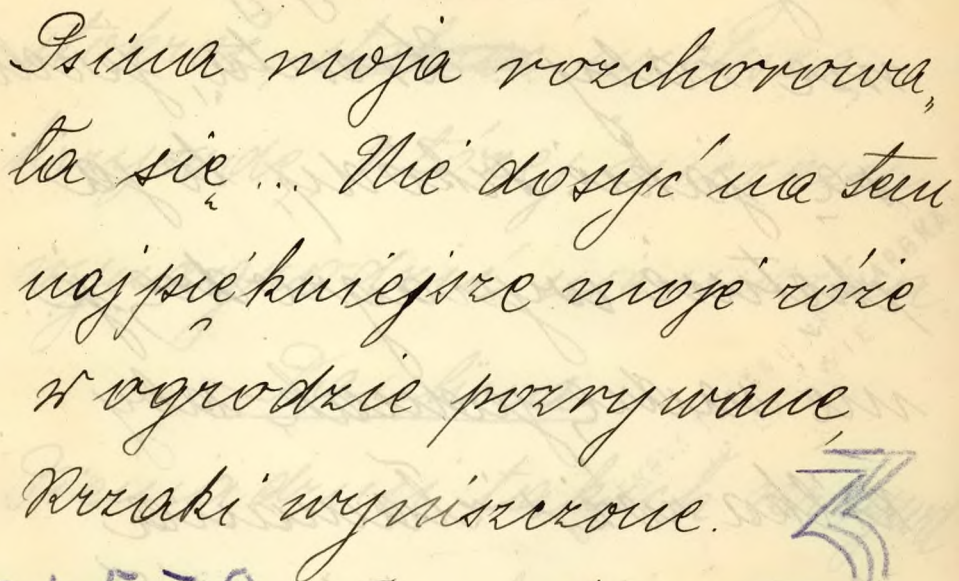 Psina moja rozchorowa„
ła się... Nie dosyć na tem
najpiękniejsze moje róże
w ogrodzie pozrywane,
Krzaki wyniszczone.